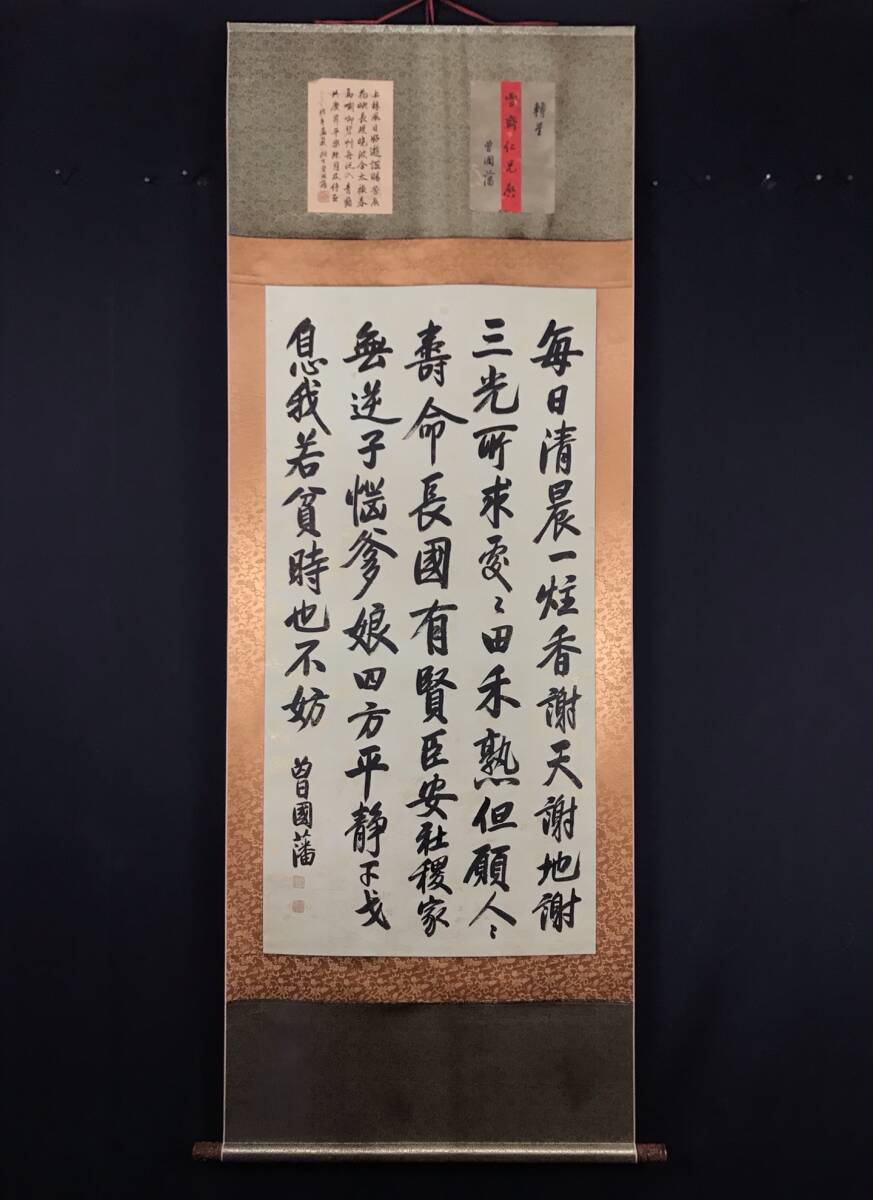 轉呈
雪齋仁兄啟
曾國藩
每日清晨一炷香謝天謝地謝
三光所求處〻田禾熟但願人〻
壽命長國有賢臣安社稷家
無逆子惱爹娘四方平靜干戈
息我若貧時也不妨
曾國藩